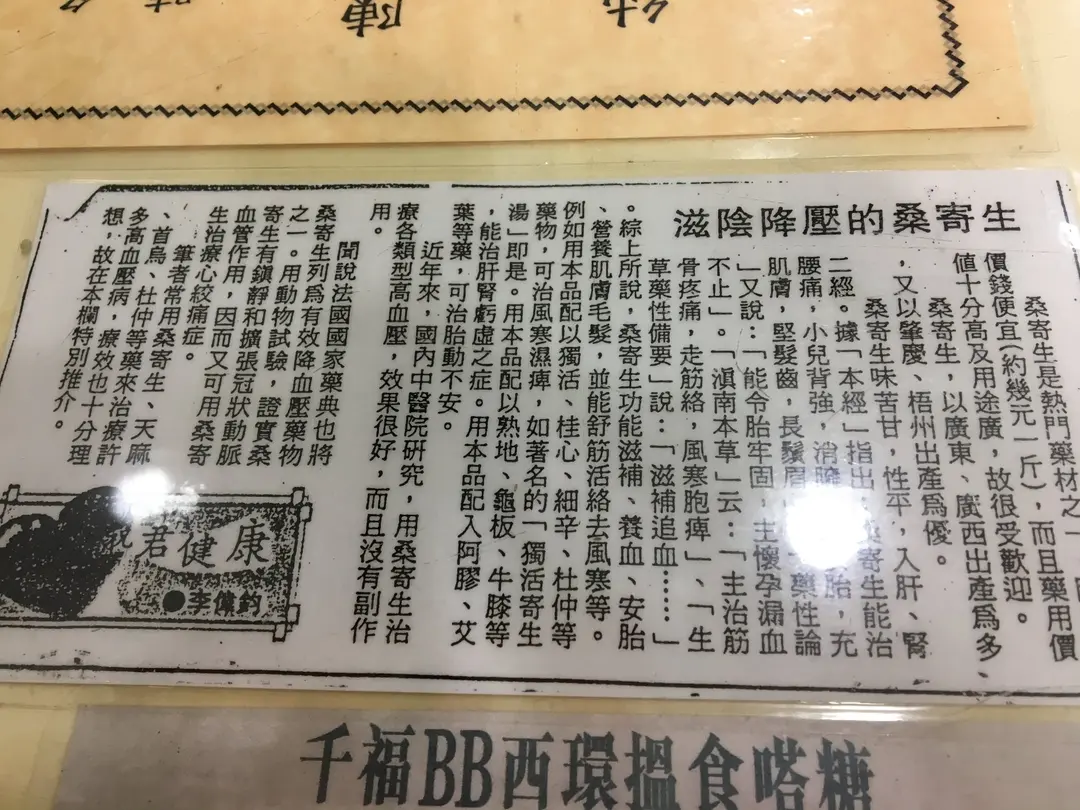 滋陰降壓的桑寄生
桑寄生是熱門藥材之一
價錢便宜(約幾元一斤),而且藥用價
值十分高及用途廣,故很受歡迎。
桑寄生,以廣東、廣西出產為多、
,又以肇慶、梧州出產為優。
桑寄生味苦甘,性平,入肝、腎
二經。據「本經」指出,桑寄生能治
腰痛,小兒背強,消 胎,充
肌膚,堅髮齒,長鬚眉 藥性論
」又說:「能令胎牢固,主懷孕漏血
不止」。「滇南本草」云:「主治筋
骨疼痛,走筋絡,風寒胞痺」、「生
草藥性備要」說:「滋補追血……」
。綜上所說,桑寄生功能滋補、養血、安胎
、營養肌膚毛髮,並能舒筋活絡去風寒等。
例如用本品配以獨活、桂心、細辛、杜仲等
藥物,可治風寒濕痺,如著名的「獨活寄生
湯」即是。用本品配以熟地、龜板、牛膝等
,能治肝腎虧虛之症。用本品配入阿膠、艾
葉等藥,可治胎動不安。
近年來,國內中醫院研究,用桑寄生治
療各類型高血壓,效果很好,而且沒有副作
用。
聞說法國國家藥典也將
桑寄生列為有效降血壓藥物
之一。用動物試驗,證實桑
寄生有鎮靜和擴張冠狀動脈
血管作用,因而又可用桑寄
生治療心絞痛症。
筆者常用桑寄生、天麻
、首烏、杜仲等藥來治療許
多高血壓病,療效也十分理
想,故在本欄特別推介。
祝君健康
●李 鈞
千福BB西環搵食嗒糖